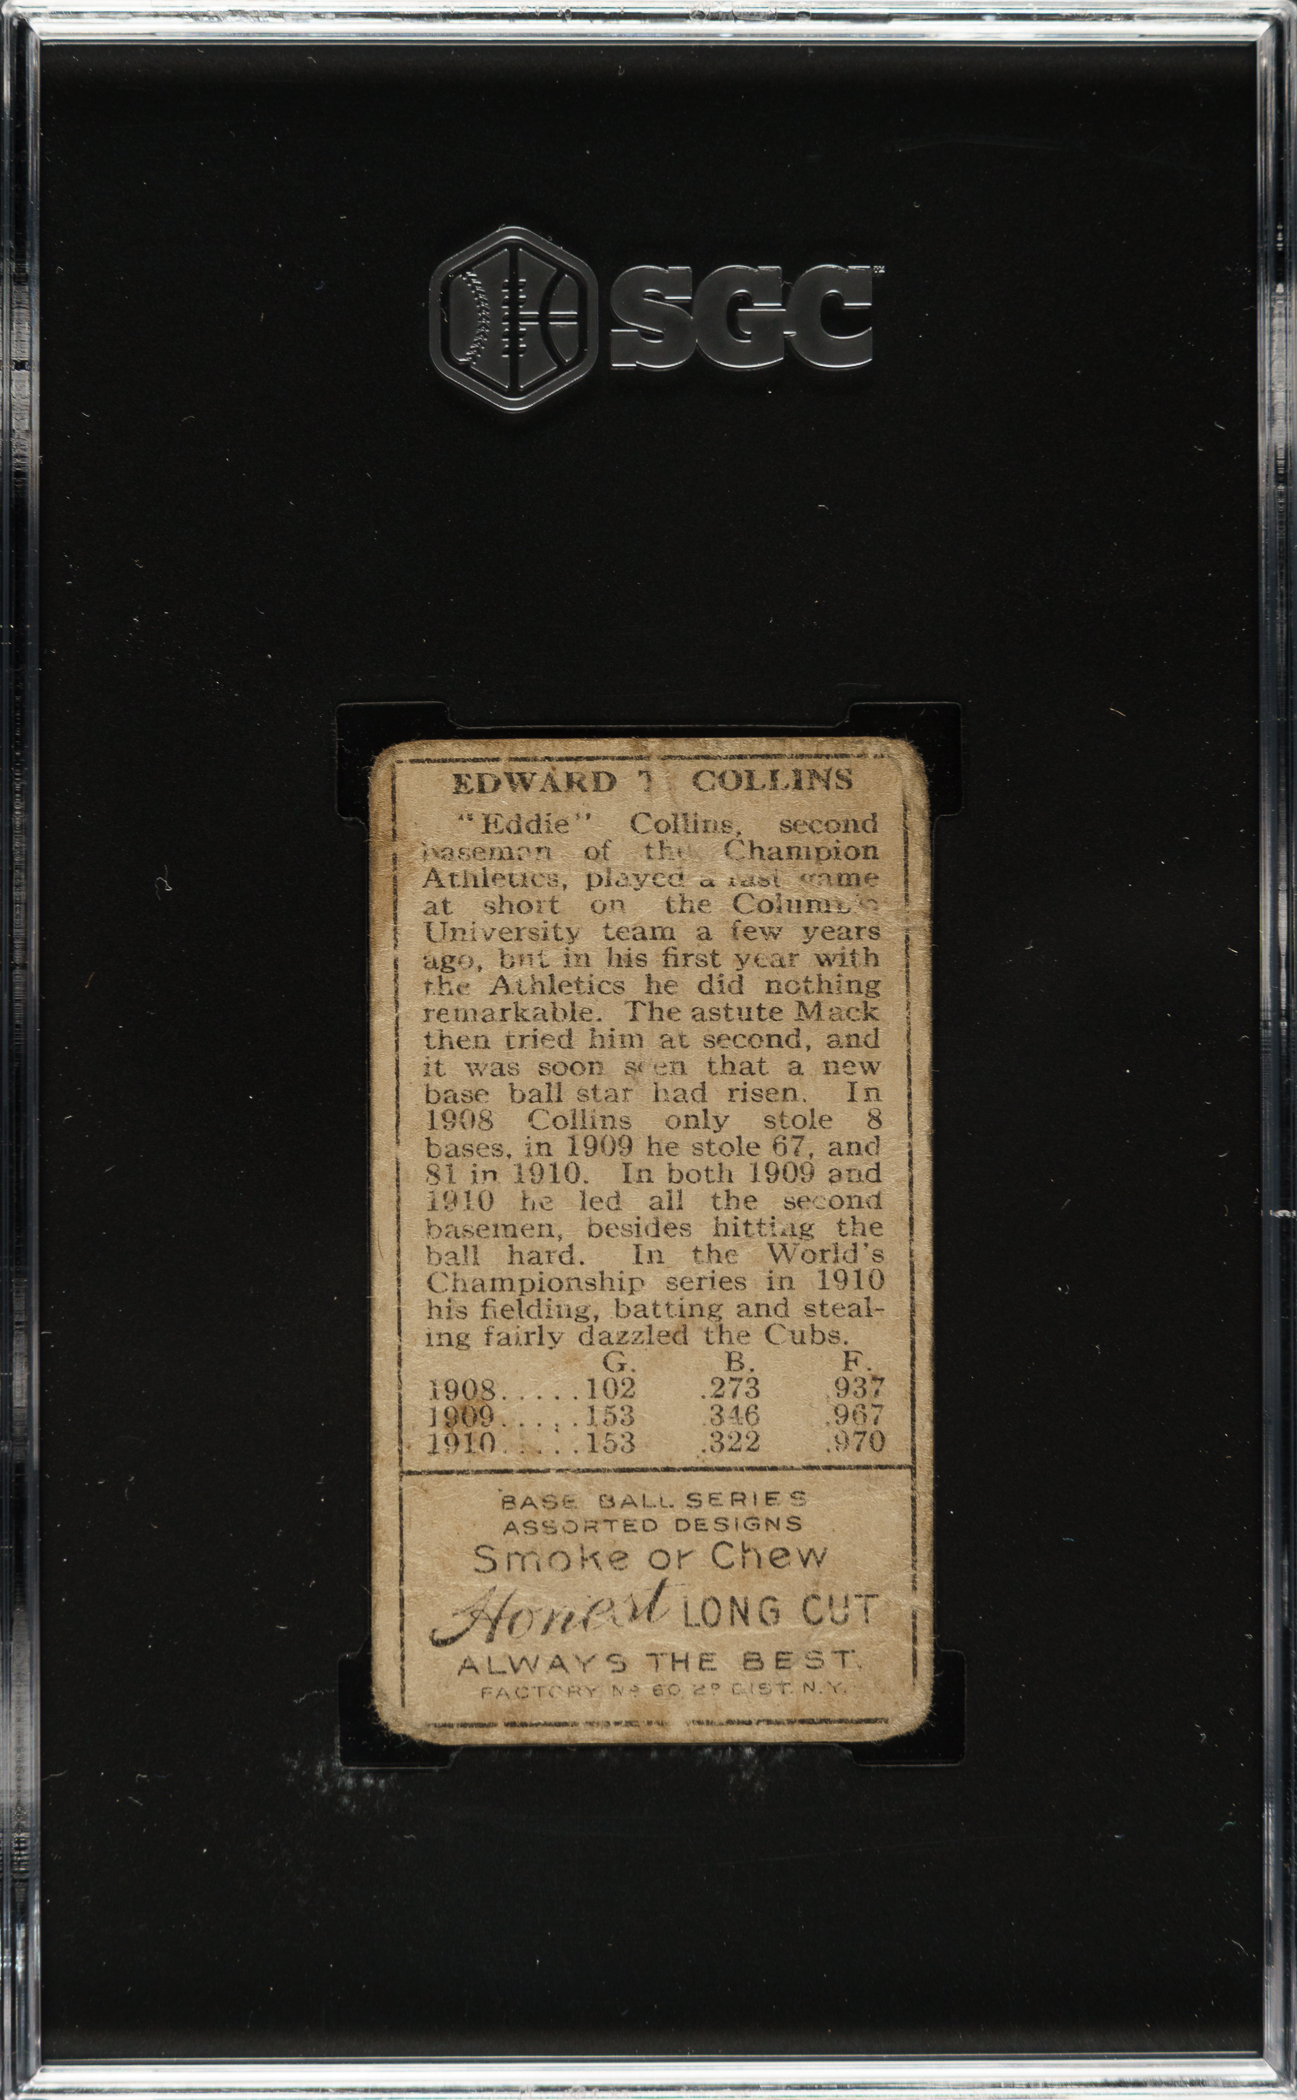 SGC
EDWARD T COLLINS
"Eddie" Collins, second
baseman of the Champion
Athletics, played a fast game
at short on the Columbia
University team a few years
ago, but in his first year with
the Athletics he did nothing
remarkable. The astute Mack
then tried him at second, and
it was soon seen that a new
base ball star had risen. In
1908 Collins only stole 8
bases, in 1909 he stole 67, and
81 in 1910. In both 1909 and
1910 he led all the second
basemen, besides hitting the
ball hard. In the World's
Championship series in 1910
his fielding, batting and steal-
ing fairly dazzled the Cubs.
G. B. F.
1908.....102 .273 .937
1909.....153 .346 .967
1910.....153 .322 .970
BASE BALL SERIES
ASSORTED DESIGNS
Smoke or Chew
Honest LONG CUT
ALWAYS THE BEST.
FACTORY Nº 60, 2D DIST. N.Y.